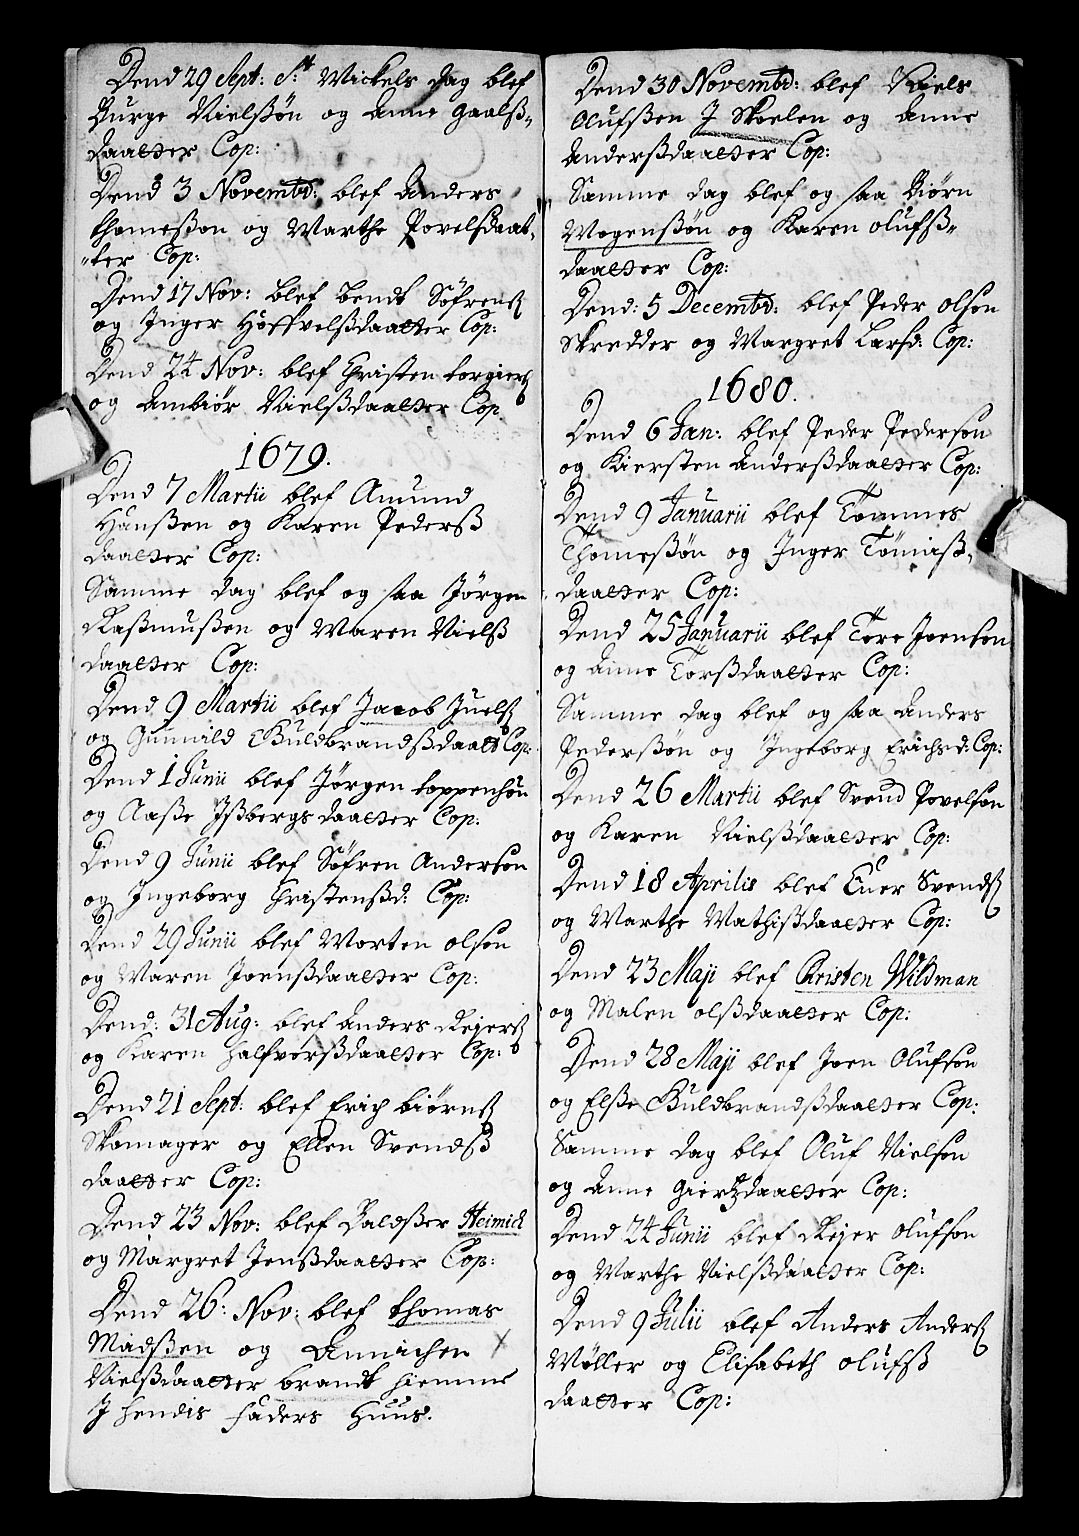 Dend 29 Sept: St Mickels dag blef
Burge Nielsßøn og Anne Gaalß-
daatter Cop:
Dend 3 Novembr: blef Anders
Thomeßon og Marthe Povelsdaat-
ter Cop:
Dend 17 Nov: blef Bendt Søfrens
og Inger Hoffvelßdaatter Cop:
Dend 24 Nov: blef Christen Torgiers
og Anbiør Nielßdaatter Cop
1679.
Dend 7 Martii blef Amund
Hanßen og Karen Pederß
daatter Cop:
Samme dag blef og saa Jørgen
Raßmußen og Maren Nielß
daatter Cop:
Dend 9 Martii blef Jacob Juels
og Gunnild Guldbrandßdaatt Cop:
Dend 1 Junii blef Jørgen Toppenhøu
og Aaße Ißbergsdaatter Cop:
Dend 9 Junii blef Søfren Anderson
og Ingeborg Christensßd: Cop:
Dend 29 Junii blef Morten Olson
og Maren Joenßdaatter Cop:
Dend: 31 Aug: blef Anders Rejers
og Karen Halfvorßdaatter Cop:
Dend 21 Sept: blef Erich Biørns
Skomager og Ellen Svendß
daatter Cop:
Dend 23 Nov: blef Baldßer Heimich
og Margret Jenßdaatter Cop:
Dend 26: Nov: blef Thomas
Madßen og Annichen
Nielßdaatter Brandt hiemme
J hendis Faders Huus.
Dend 30 Novembr: blef Niels
Olufßen J Skoelen og Anne
Anderßdaatter Cop:
Samme dag blef og saa Biørn
Mogenßøn og Karen Olufß-
daatter Cop:
Dend: 5 Decembr: blef Peder Olson
Skredder og Margret Larsd: Cop:
1680.
Dend 6 Jan: blef Peder Pederson
og Kiersten Anderßdaatter Cop:
Dend 9 Januarii blef Tommes
Thomeßøn og Inger Tomiß-
daatter Cop:
Dend 25 Januarii blef Tore Joenson
og Anne Torßdaatter Cop:
Samme dag blef og saa Anders
Pederßøn og Ingeborg Erichsd: Cop:
Dend 26 Martii blef Svend Povelson
og Karen Nielßdaatter Cop:
Dend 18 Aprilis blef Euer Svends
og Marthe Mathißdaatter Cop:
Dend 23 Maji blef Christen Wildman
og Malen Olßdaatter Cop:
Dend 28 Maji blef Joen Olufson
og Elße Guldbrandßdaatter Cop:
Samme dag blef Oluf Nielson
og Anne Giertzdaatter Cop:
Dend 24 Junii blef Rejer Olufson
og Marthe Nielßdaatter Cop:
Dend 9 Julii blef Anders Anders
Møller og Elisabeth Olufß
daatter Cop: